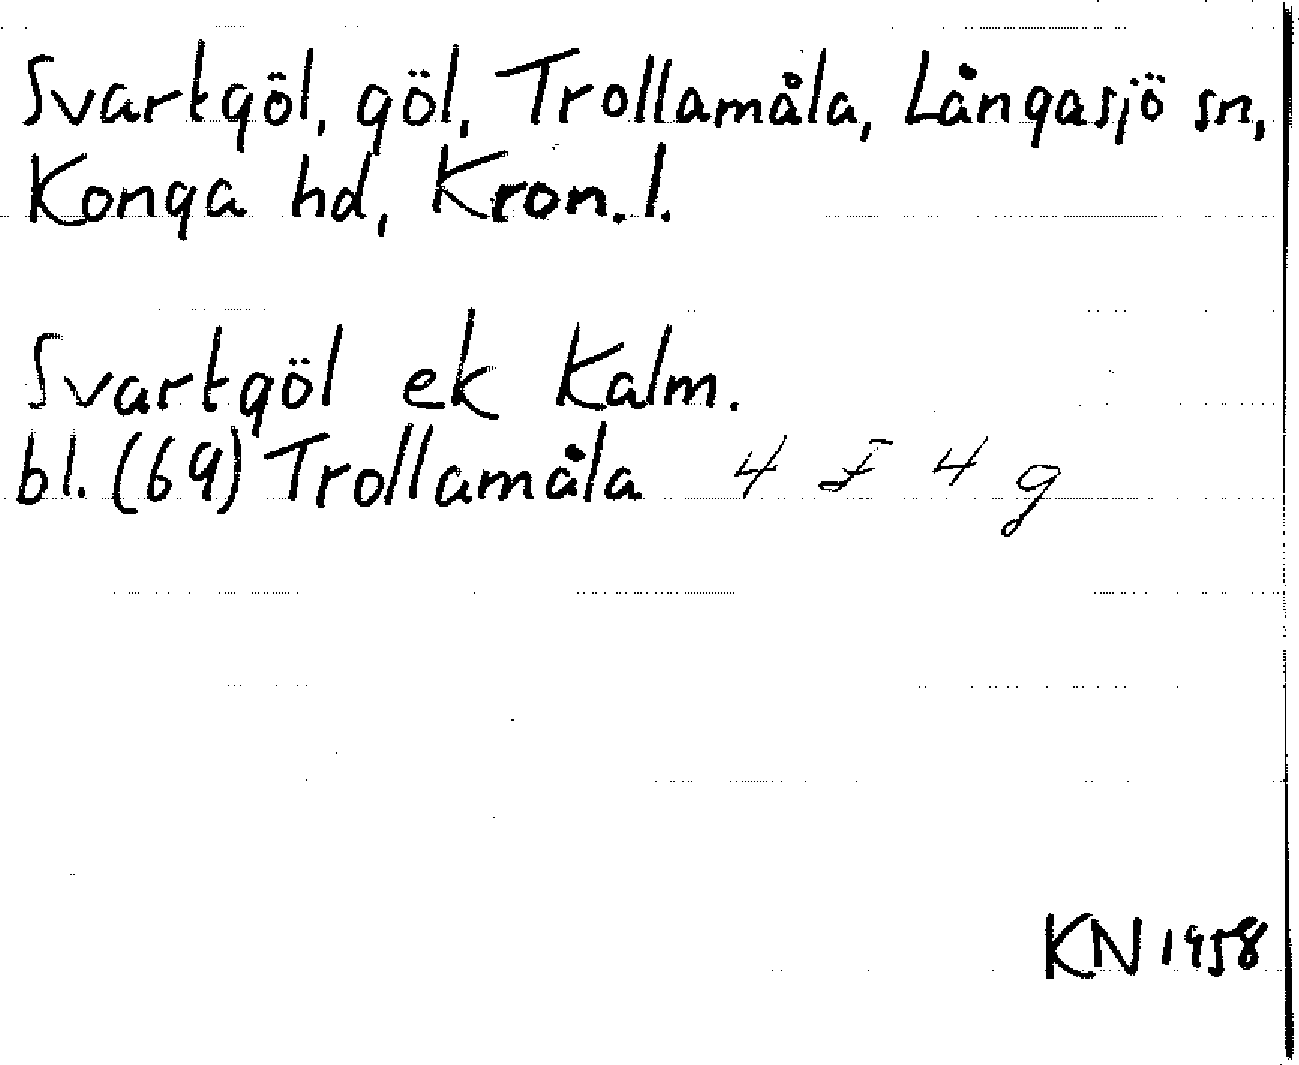 Svartgöl, göl, Trollamåla, Långasjö sn,
Konga hd, Kron. l.
Svartgöl ek Kalm.
bl. (69) Trollamåla 4 F 4 g
KN 1958